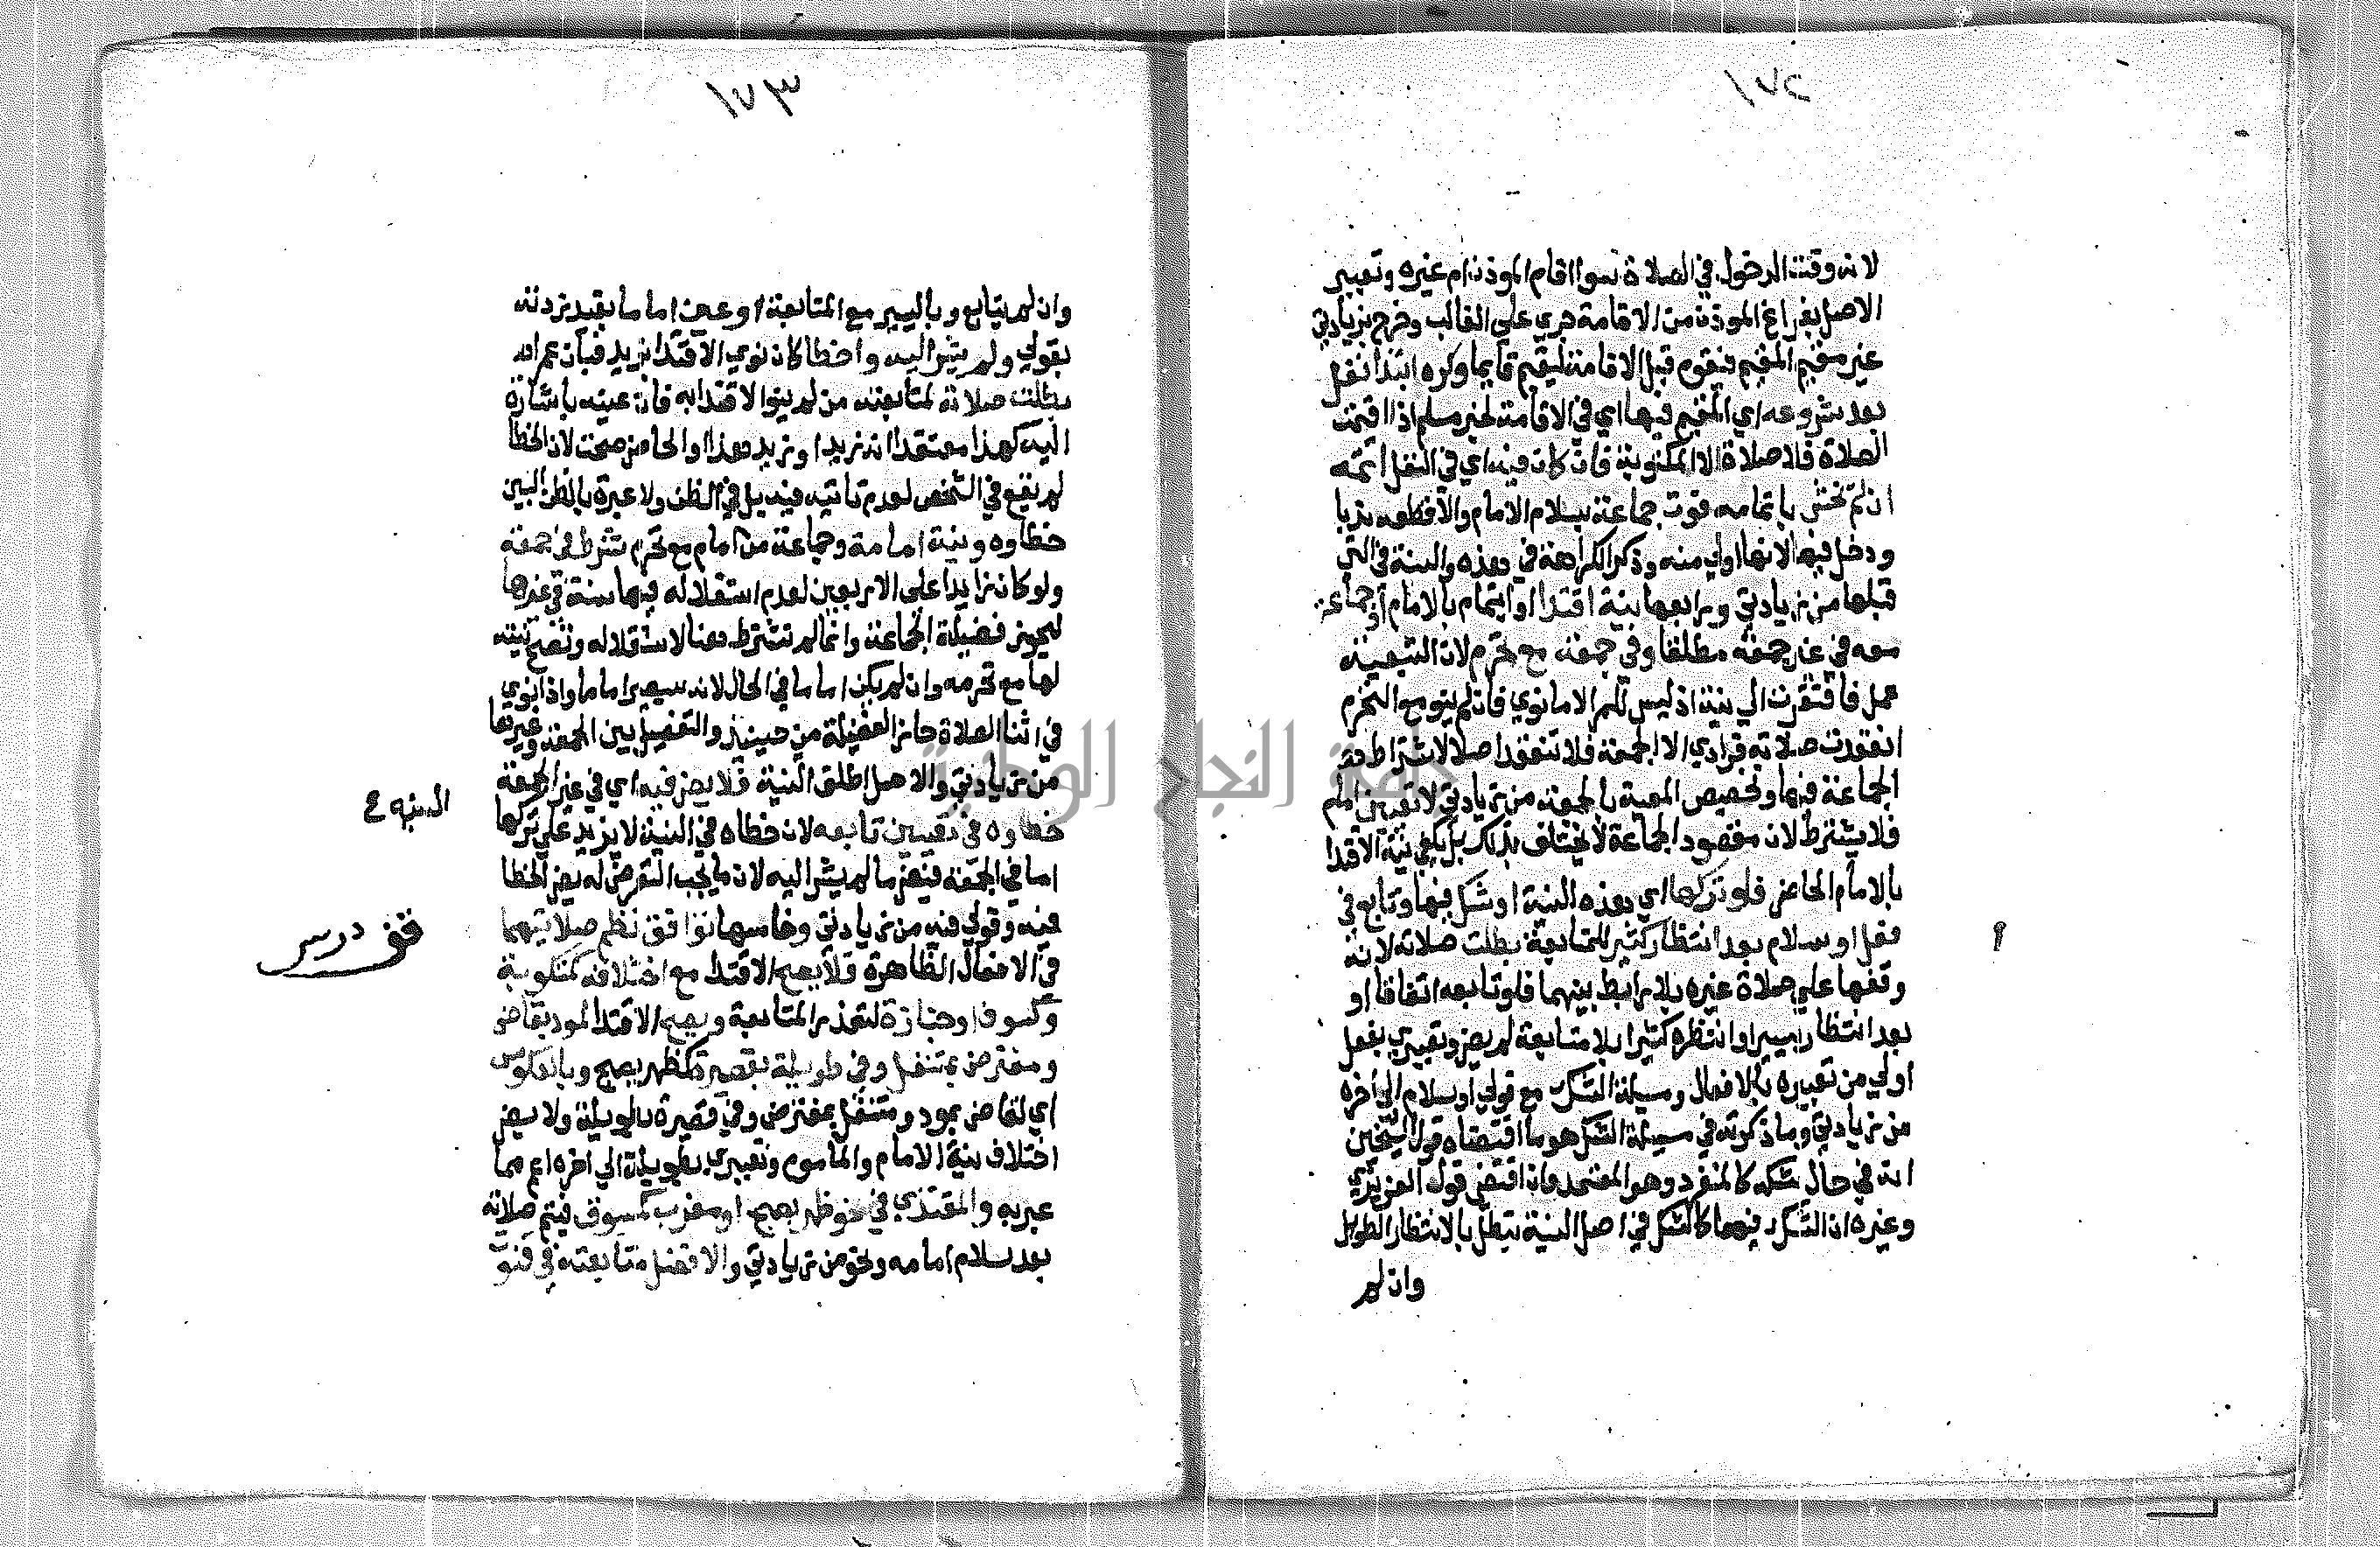 ١٧٢
لانه وقت الدخول في الصلاة سوا اقام الموذن ام غيره وتعبير
الاصل بفراغ الموذن من الاقامة جري علي الغالب وخرج بزيادتي
غير مقيم المقيم فيقوم قبل الاقامة ليقيم قايما وكره ابتدا نفل
بعد شروعه اي المقيم فيها اي في الاقامة لخبر مسلم اذا اقيمت
الصلاة فلا صلاة الا المكتوبة فان كان فيه اي في النفل اتمه
ان لم يخش باتمامه فوت جماعة بسلام الامام والا قطعه ندبا
ودخل فيها لانها اولي منه وذكر الكراهة في هذه والسنة في التي
قبلها من زيادتي ورابعها نية اقتدا او ايتمام بالامام او جماعة
معه في غير جمعة مطلقا وفي جمعة مع تحرم لان التبعية
عمل فافتقرت الي نية اذ ليس للمر الا ما نوي فان لم ينو مع التحرم
انعقدت صلاته فرادي الا الجمعة فلا تنعقد اصلا لاشتراط
الجماعة فيها وتخصيص المعية بالجمعة من زيادتي لا تعيين امام
فلا يشترط لان مقصود الجماعة لا يختلف بذلك بل يكفي نية الاقتدا
بالامام الحاضر فلو تركها اي هذه النية او شك فيها وتابع في
فعل او سلام بعد انتظار كثير للمتابعة بطلت صلاته لانه
وقفها علي صلاة غيره بلا رابط بينهما فلو تابعه اتفاقا او
بعد انتظار يسير او انتظره كثيرا بلا متابعة لم يضر وتعبيري بفعل
اولي من تعبيره بالافعال ومسيلة الشك مع قولي او سلام الي اخره
من زيادتي وما ذكرته في مسيلة الشك هو ما اقتضاه قول الشيخين
انه في حال شكه كالمنفرد وهو المعتمد وان اقتضي قول العزيزي
وغيره ان الشك فيهما كالشك في اصل النية تبطل بالانتظار الطويل
وان لم
١٧٣
وان لم يتابع وباليسير مع المتابعة او عين اماما بقيد زدته
بقولي ولم يشر اليه واخطا كان نوي الاقتدا بزيد فبان عمرا
بطلت صلاته لمتابعته من لم ينو الاقتدا به فان عينه باشارة
اليه كهذا معتقدا انه زيد او بزيد هذا او الحاضر صحت لان الخطا
لم يقع في الشخص لعدم تاتيه فيه بل في الظن ولا عبرة بالظن البين
خطاوه ونية امامة وجماعة من امام مع تحرم شرط في جمعة
ولو كان زايدا علي الاربعين لعدم استقلاله فيها سنة في غيرها
ليحوز فضيلة الجماعة وانما لم تشترط هنا لاستقلاله وتصح نيته
لها مع تحرمه وان لم يكن اماما في الحال لانه سيصير اماما واذا نوي
في اثنا الصلاة حاز الفضيلة من حينيذ والتفصيل بين الجمعة وغيرها
من زيادتي والاصل اطلق النية فلا يضر فيه اي في غير الجمعة
خطاوه في تعيين تابعه لان خطاه في النية لا يزيد علي تركها
اما في الجمعة فيضر ما لم يشر اليه لان ما يجب التعرض له يضر الخطا
فيه وقولي فيه من زيادتي وخامسها توافق نظم صلاتيهما
في الافعال الظاهرة فلا يصح الاقتدا مع اختلافه كمكتوبة
وكسوف او جنازة لتعذر المتابعة ويصح الاقتدا لمود بقاض
ومفترض بمتنفل وفي طويلة بقصيرة كظهر بصبح وبالعكوس
اي لقاض بمود ومتنفل بمفترض وفي قصيرة بطويلة ولا يضر
اختلاف نية الامام والماموم وتعبيري بطويلة الي اخره اعم مما
عبر به والمقتدي في نحو ظهر بصبح او مغرب كمسبوق فيتم صلاته
بعد سلام امامه ونحو من زيادتي والافضل متابعته في قنوت
قف درس
جامعة النجاح الوطنية